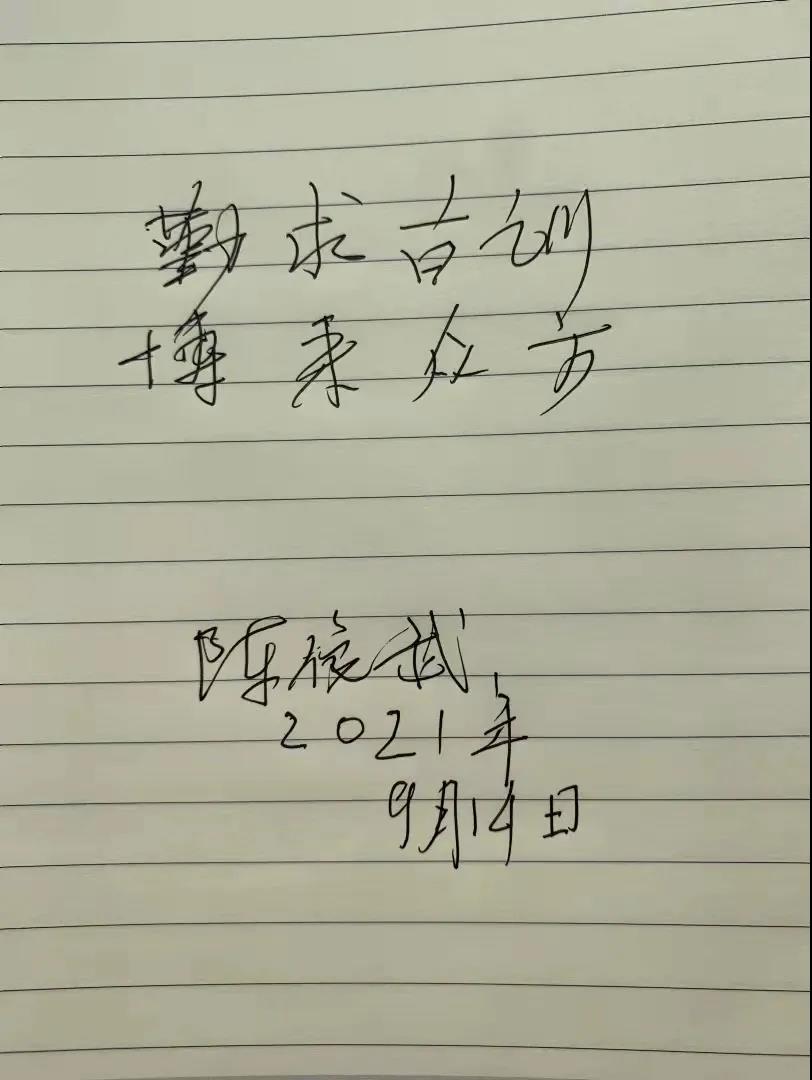 勤求古训
博采众方
陈俊武
2021年
9月14日